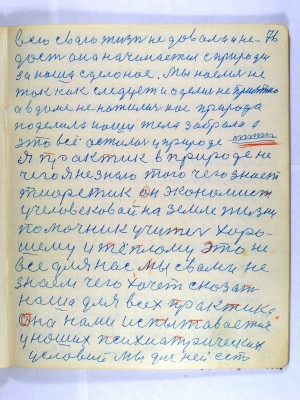 всю свою жизнь не довала и не- 76
дост она начинается с природи
за наша сделоное. Мы наелися не
так как следует и одели не приятно
а в доме не нажилися нас природа
поделила наши тела забрала а
это всё осталися у природе
Я практик в природе не
чего я не знаю того чего знает
тиоретик он экономист
у человековай на земле жизни
помочник учител харо-
шему и тёплому это не
все для нас мы свами не
знаем чего хочет сказат
наша для всех практика
Она нами испытавается
у наших психиатрических
условий мы для ней ест